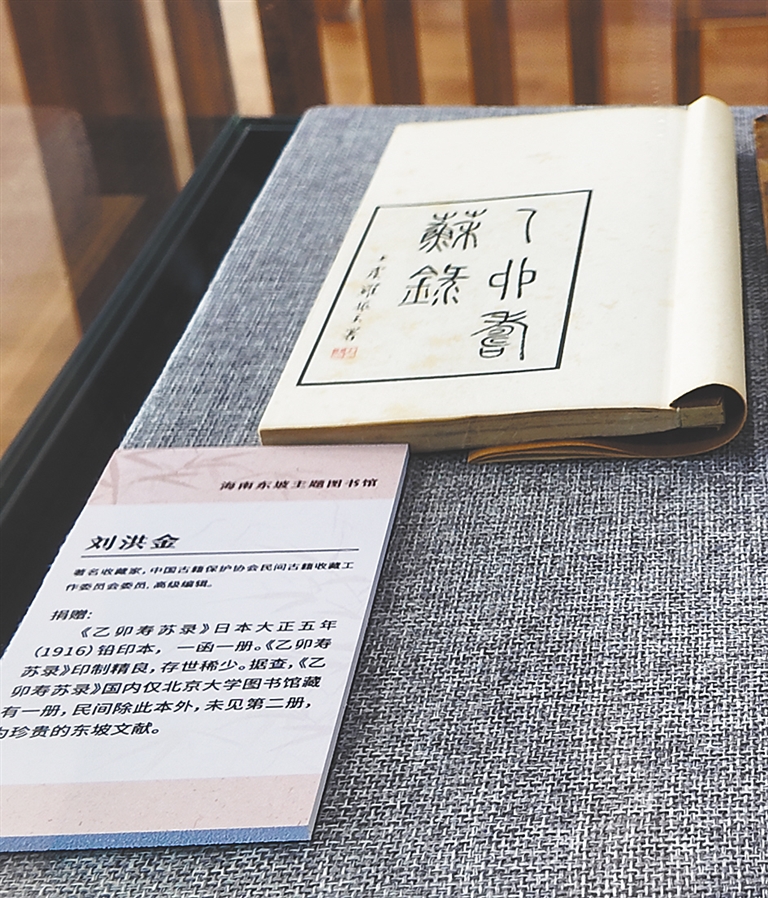 乙卯壽
蘇錄
海南东坡主题图书馆
刘洪金
著名收藏家，中国古籍保护协会民间古籍收藏工
作委员会委员，高级编辑。
捐赠：
《乙卯寿苏录》日本大正五年
（1916）铅印本，一函一册。《乙卯寿
苏录》印制精良，存世稀少。据查，《乙
卯寿苏录》国内仅北京大学图书馆藏
有一册，民间除此本外，未见第二册，
为珍贵的东坡文献。